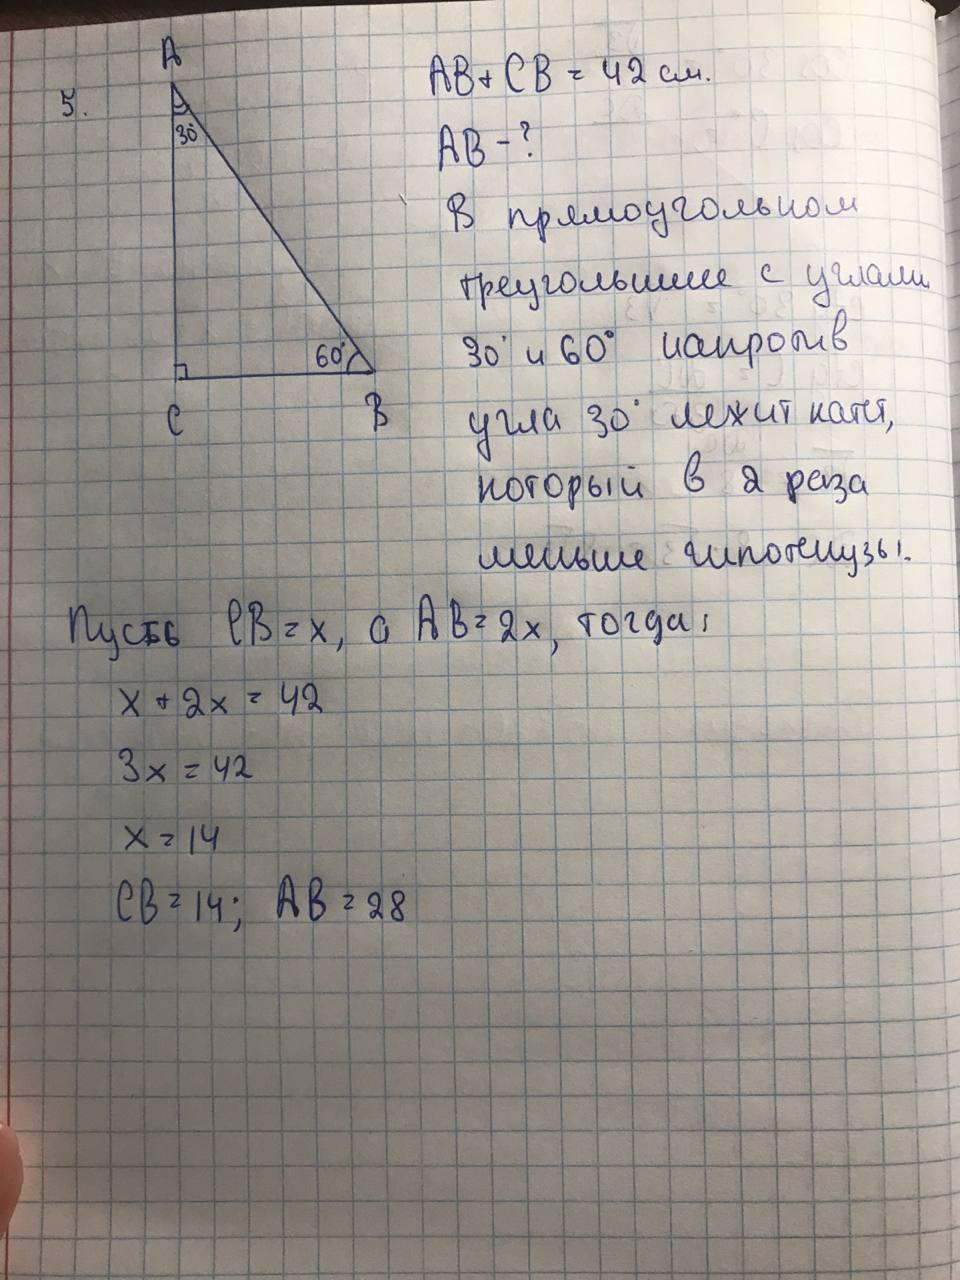 5.
A
30°
60°
C
B
AB + CB = 42 см.
AB - ?
В прямоугольном
треугольнике с углами
30° и 60° напротив
угла 30° лежит катет,
который в 2 раза
меньше гипотенузы.
Пусть CB = x, а AB = 2x, тогда:
x + 2x = 42
3x = 42
x = 14
CB = 14; AB = 28